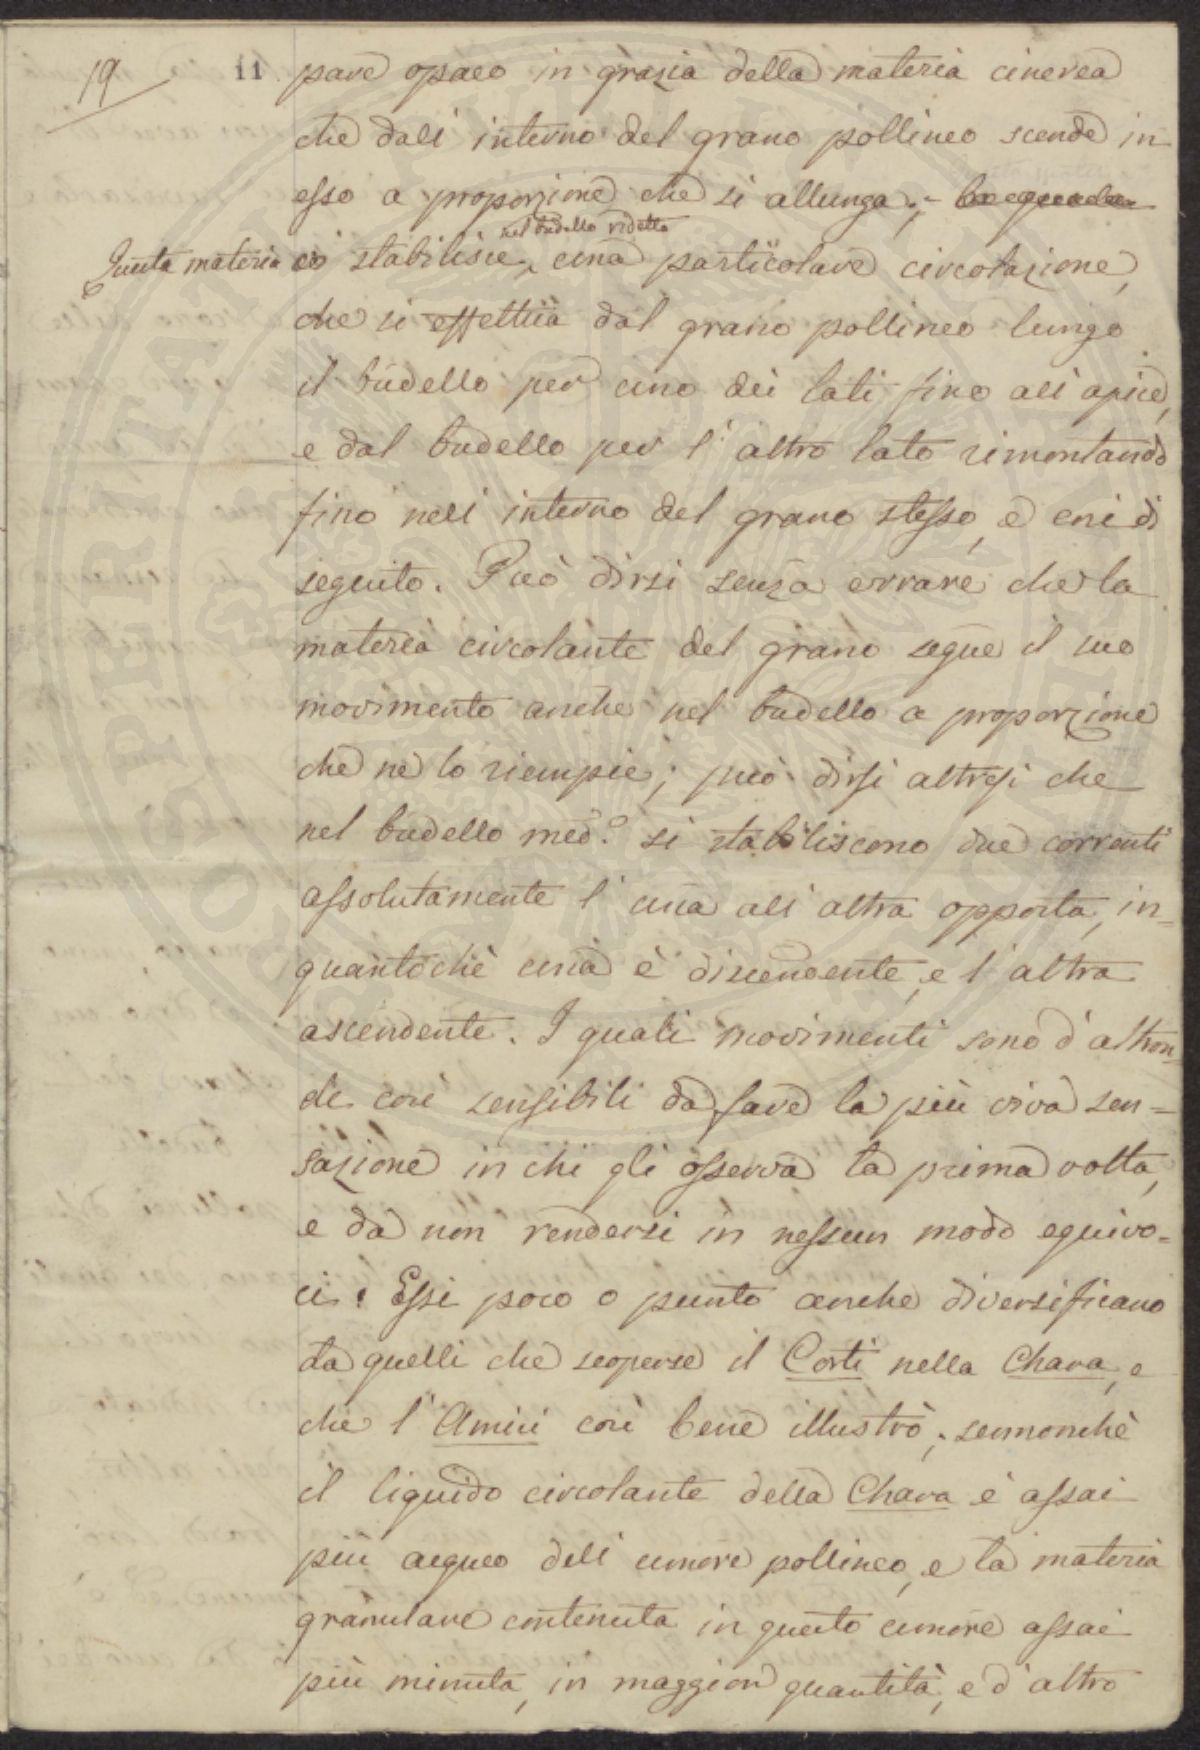 19 11 pare opaco in grazia della materia cinerea
che dall' interno del grano pollineo scende in
esso a proporzione che si allunga; - la quale
nel budello ridetto
Questa materia ci stabilisce, una particolare circolazione,
che si effettua dal grano pollineo lungo
il budello per uno dei lati fino all' apice,
e dal budello per l' altro lato rimontando
fino nell' interno del grano stesso, e così di
seguito. Può dirsi senza errare che la
materia circolante del grano segue il suo
movimento anche nel budello a proporzione
che ne lo riempie; può dirsi altresì che
nel budello med.º si stabiliscono due correnti
assolutamente l' una all' altra opposta, in=
quantochè una è discendente, e l' altra
ascendente. I quali movimenti sono d' altron=
de così sensibili da fare la più viva sen=
sazione in chi gli osserva la prima volta,
e da non rendersi in nessun modo equivo=
ci. Essi poco o punto anche diversificano
da quelli che scoperse il Corti nella Chara, e
che l' Amici così bene illustrò; sennonchè
il liquido circolante della Chara è assai
più acqueo dell' umore pollineo, e la materia
granulare contenuta in questo umore assai
più minuta, in maggior quantità, e d' altro